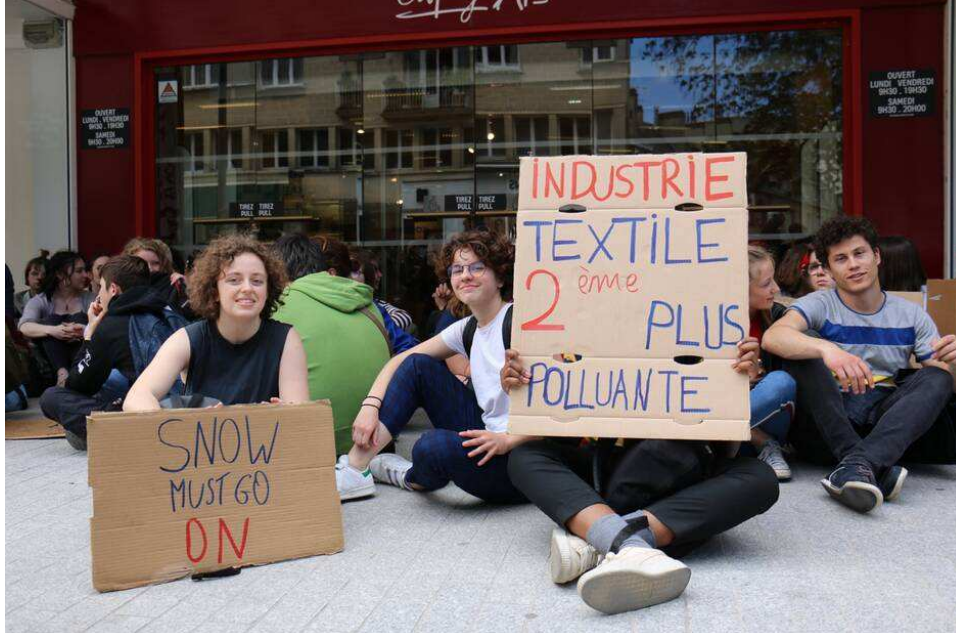 OUVERT
LUNDI VENDREDI
9H30 . 19H30
SAMEDI
9H30 . 20H00
OUVERT
LUNDI VENDREDI
9H30 . 19H30
SAMEDI
9H30 . 20H00
TIREZ TIREZ
PULL PULL
TIREZ TIREZ
PULL PULL
INDUSTRIE
TEXTILE
2 ème PLUS
POLLUANTE
SNOW
MUST GO
ON